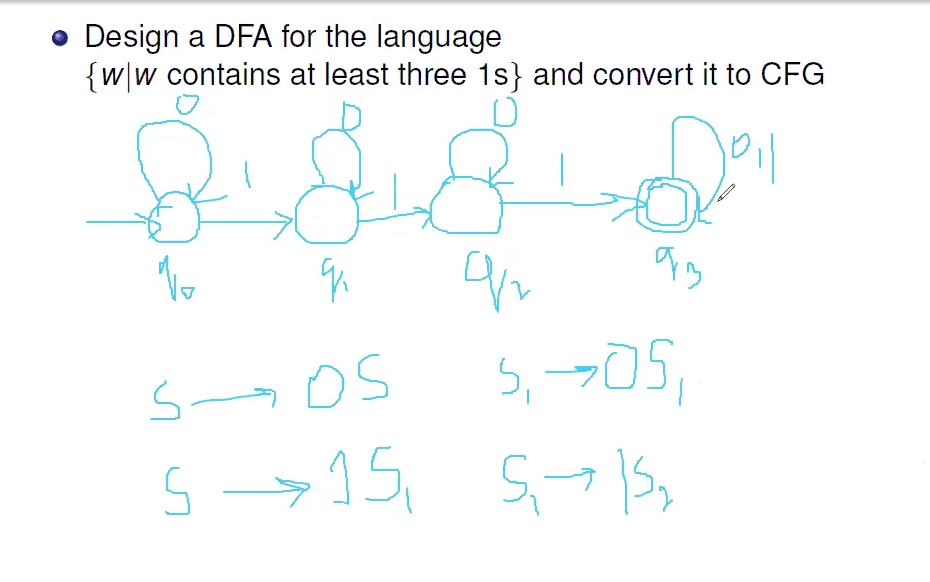 Design a DFA for the language
{w|w contains at least three 1s} and convert it to CFG
0 0 0 0,1
1 1 1
q0 q1 q2 q3
S → 0S S1 → 0S1
S → 1S1 S1 → 1S2